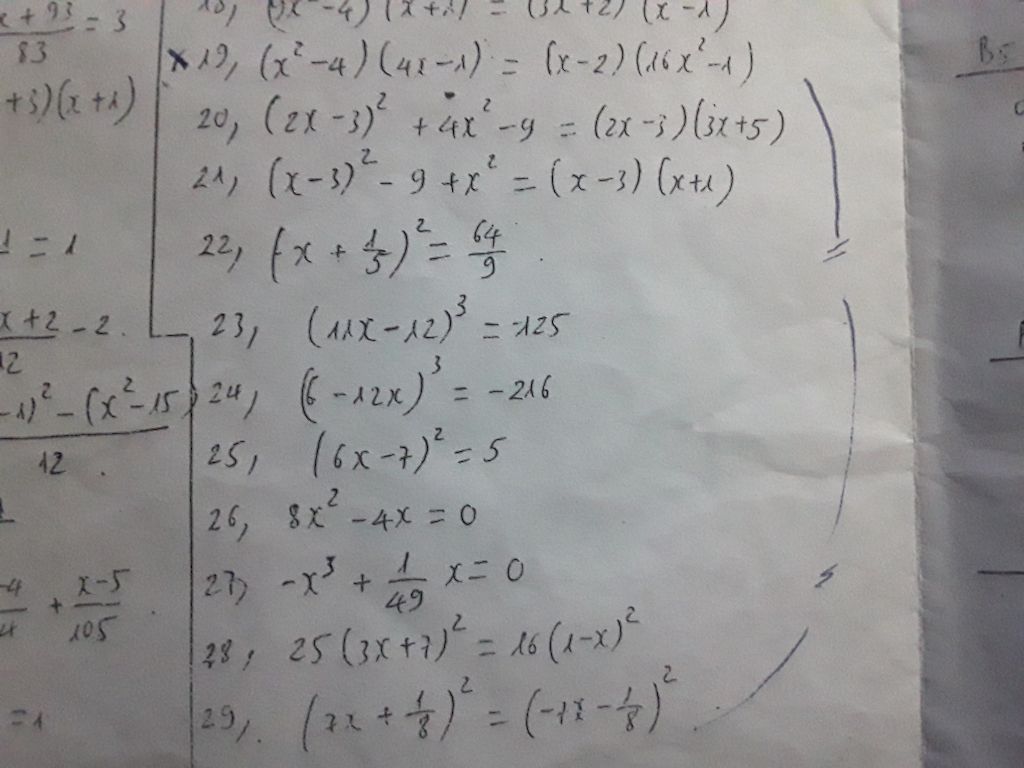 x + 93 / 83 = 3
+3)(x+1)
1 = 1
x+2 / 12 - 2.
-1)² - (x² - 15) / 12 .
-4 / 4 + x-5 / 105 .
= 1
18, (9x² - 4)(x+1) = (3x+2)(x-1)
x 19, (x² - 4)(4x - 1) = (x-2)(16x² - 1)
20, (2x - 3)² + 4x² - 9 = (2x - 3)(3x+5)
21, (x-3)² - 9 + x² = (x-3)(x+1)
22, (-x + 1/5)² = 64/9 .
23, (11x - 12)³ = -125
24, (6 - 12x)³ = -216
25, (6x - 7)² = 5
26, 8x² - 4x = 0
27, -x³ + 1/49 x = 0
28, 25(3x+7)² = 16(1-x)²
29, (7x + 1/8)² = (-7x - 1/8)²
B5